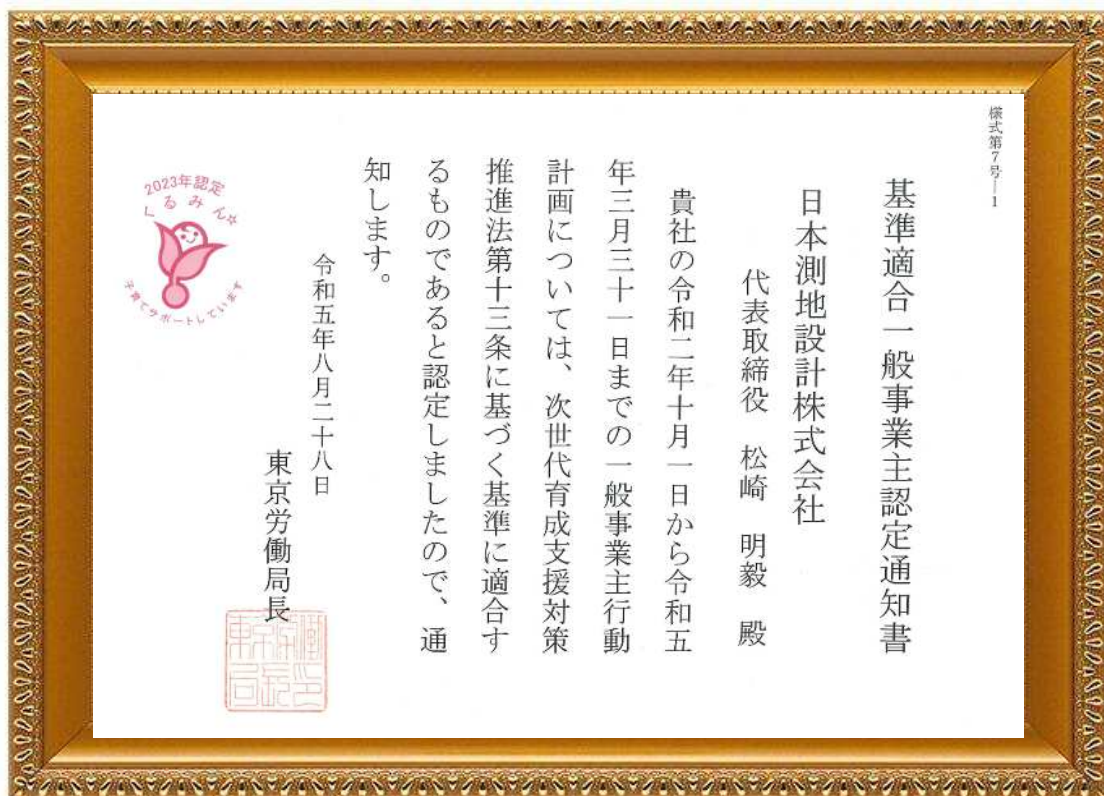 様式第7号―1
基準適合一般事業主認定通知書
日本測地設計株式会社
代表取締役　松崎　明毅　殿
貴社の令和二年十月一日から令和五
年三月三十一日までの一般事業主行動
計画については、次世代育成支援対策
推進法第十三条に基づく基準に適合す
るものであると認定しましたので、通
知します。
令和五年八月二十八日
東京労働局長
2023年認定
くるみん☆
子育てサポートしています